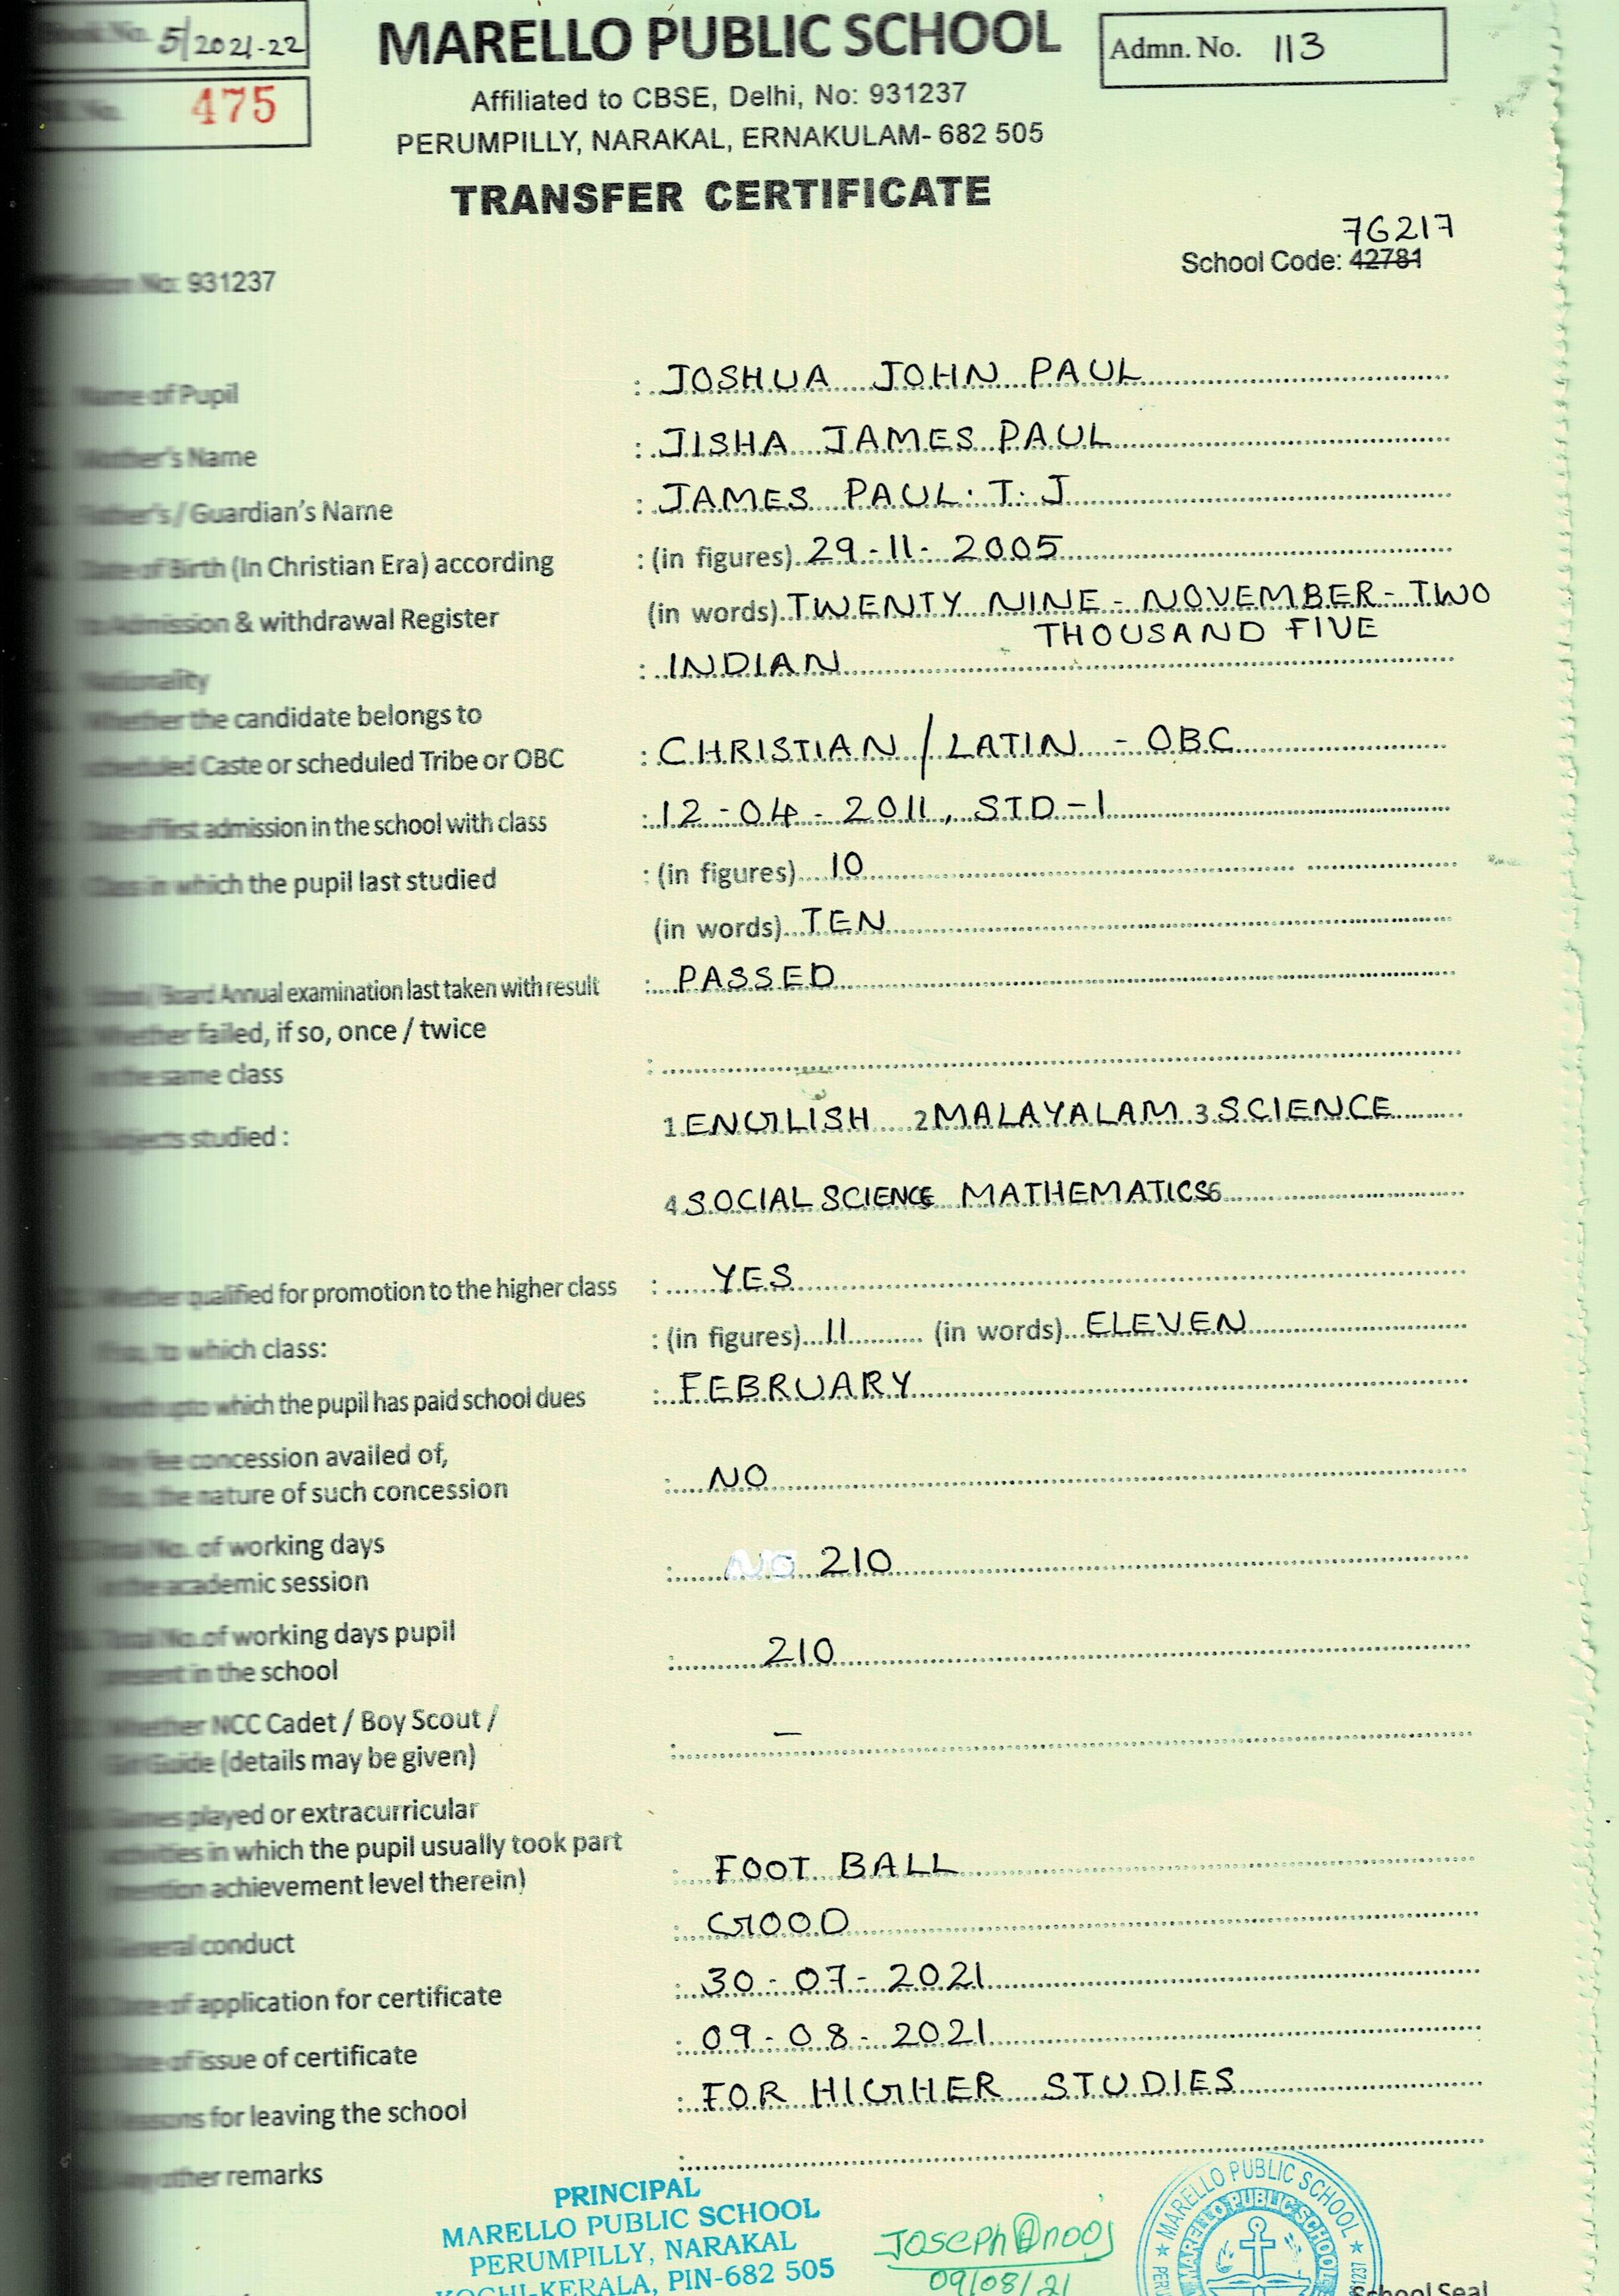 5/2021-22
MARELLO PUBLIC SCHOOL
Admn. No. 113
475
Affiliated to CBSE, Delhi, No: 931237
PERUMPILLY, NARAKAL, ERNAKULAM- 682 505
TRANSFER CERTIFICATE
76217
School Code: 42781
No: 931237
Name of Pupil : JOSHUA JOHN PAUL
Mother's Name : JISHA JAMES PAUL
Father's / Guardian's Name : JAMES PAUL. T. J
Date of Birth (In Christian Era) according : (in figures) 29-11-2005
Admission & withdrawal Register (in words) TWENTY NINE - NOVEMBER - TWO
THOUSAND FIVE
Nationality : INDIAN
Whether the candidate belongs to
scheduled Caste or scheduled Tribe or OBC : CHRISTIAN / LATIN - OBC
Date of first admission in the school with class : 12-04-2011, STD-1
Class in which the pupil last studied : (in figures) 10
(in words) TEN
/ Board Annual examination last taken with result : PASSED
Whether failed, if so, once / twice
in the same class :
Subjects studied : 1 ENGLISH 2 MALAYALAM 3 SCIENCE
4 SOCIAL SCIENCE MATHEMATICS 6
Whether qualified for promotion to the higher class : YES
If so, to which class: : (in figures) 11 (in words) ELEVEN
Month upto which the pupil has paid school dues : FEBRUARY
Any fee concession availed of,
If so, the nature of such concession : NO
Total No. of working days
in the academic session : 210
Total No. of working days pupil
present in the school : 210
Whether NCC Cadet / Boy Scout /
Girl Guide (details may be given) : –
Games played or extracurricular
activities in which the pupil usually took part
mention achievement level therein) : FOOT BALL
General conduct : GOOD
Date of application for certificate : 30-07-2021
Date of issue of certificate : 09-08-2021
Reasons for leaving the school : FOR HIGHER STUDIES
Any other remarks :
PRINCIPAL
MARELLO PUBLIC SCHOOL
PERUMPILLY, NARAKAL
KOCHI-KERALA, PIN-682 505
09/08/21
MARELLO PUBLIC SCHOOL
MARELLO PUBLIC SCHOOL
School Seal